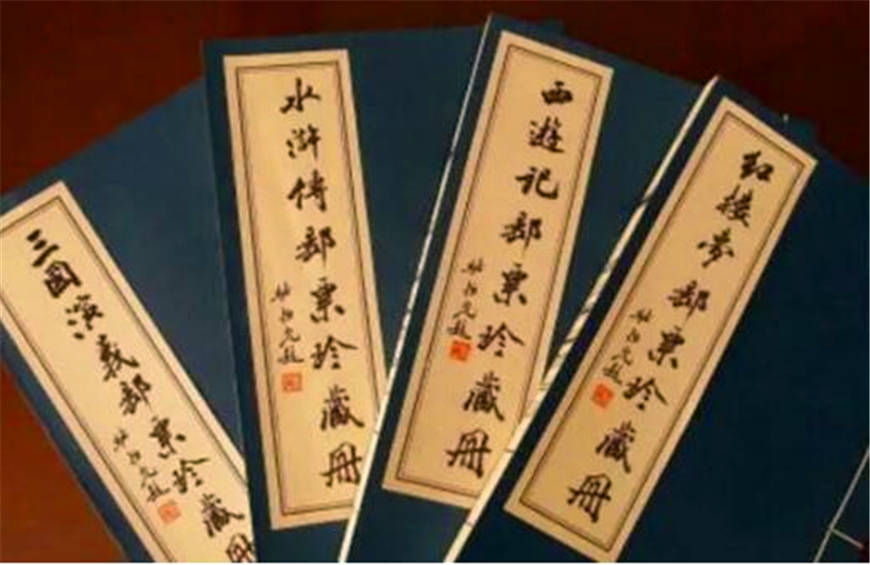 三国演義郵票珍藏冊
水滸傳郵票珍藏冊
西遊记郵票珍藏冊
红楼梦郵票珍藏冊